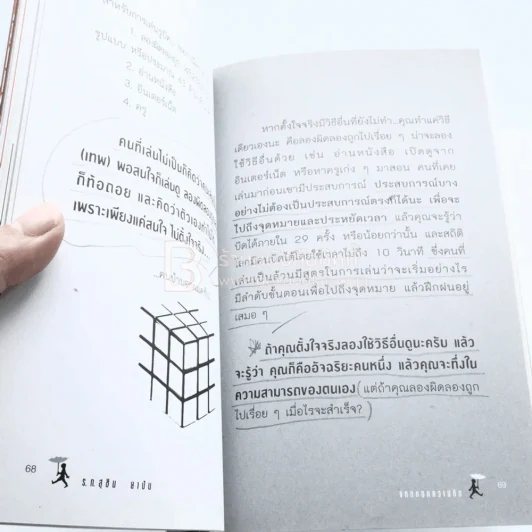 สำหรับการเล่นรูบิค
1. ลองผิดลองถูก
2. อ่านหนังสือ
3. อินเตอร์เน็ต
4. ครู
คนที่เล่นไม่เป็นก็คิดว่า
(เทพ) พอสนใจก็เล่นดู ลองผิดลอง
ก็ท้อถอย และคิดว่าตัวเอง
เพราะเพียงแค่สนใจ ไม่ตั้งใจจริง
68
ร.ก.สุชิน
หากตั้งใจจริงมีวิธีอื่นที่ยังไม่ทำ...คุณทำแค่วิธี
เดียวเองนะ คือลองผิดลองถูกไปเรื่อย ๆ น่าจะลอง
ใช้วิธีอื่นด้วย เช่น อ่านหนังสือ เปิดดูจาก
อินเตอร์เน็ต หรือหาครูเก่ง ๆ มาสอน คนที่เคย
เล่นมาก่อนเขามีประสบการณ์ ประสบการณ์บาง
อย่างไม่ต้องเป็นประสบการณ์ตรงก็ได้นะ เพื่อจะ
ไปถึงจุดหมายและประหยัดเวลา แล้วคุณจะรู้ว่า
บิดได้ภายใน 29 ครั้ง หรือน้อยกว่านั้น และสถิติ
คนบิดได้โดยใช้เวลาไม่ถึง 10 วินาที ซึ่งคนที่
เล่นเป็นล้วนมีสูตรในการเล่นว่าจะเริ่มอย่างไร
มีลำดับขั้นตอนเพื่อไปถึงจุดหมาย แล้วฝึกฝนอยู่
เสมอ ๆ
ถ้าคุณตั้งใจจริงลองใช้วิธีอื่นดูนะครับ แล้ว
จะรู้ว่า คุณก็คืออัจฉริยะคนหนึ่ง แล้วคุณจะทึ่งใน
ความสามารถของตนเอง (แต่ถ้าคุณลองผิดลองถูก
ไปเรื่อย ๆ เมื่อไรจะสำเร็จ?)
69